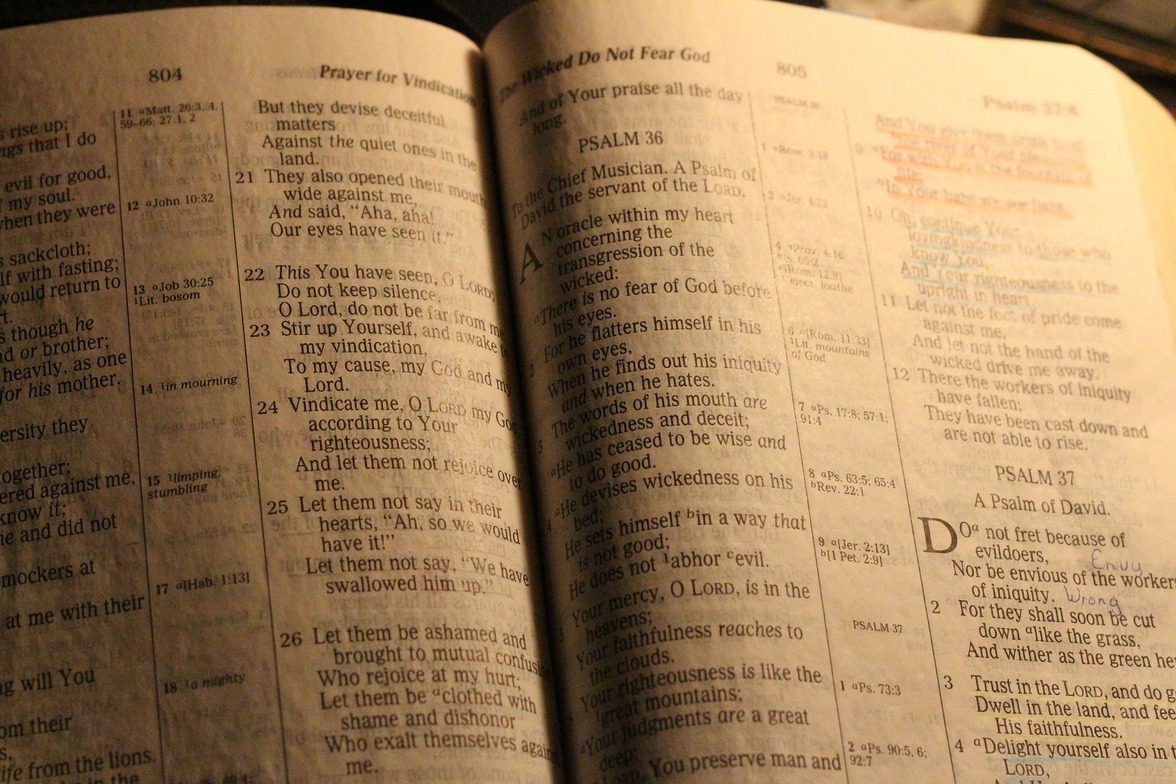 804
Prayer for Vindication
s rise up;
ngs that I do
evil for good,
f my soul.
when they were
s sackcloth;
lf with fasting;
would return to
rt.
s though he
nd or brother;
heavily, as one
for his mother.
ersity they
together;
ered against me,
know it;
me and did not
mockers at
at me with their
ng will You
om their
s,
life from the lions.
in the
11 aMatt. 26:3, 4,
59–66; 27:1, 2
12 aJohn 10:32
13 aJob 30:25
1Lit. bosom
14 1in mourning
15 1limping,
stumbling
17 a[Hab. 1:13]
18 1a mighty
But they devise deceitful
matters
Against the quiet ones in the
land.
21 They also opened their mouth
wide against me,
And said, "Aha, aha!
Our eyes have seen it."
22 This You have seen, O LORD;
Do not keep silence.
O Lord, do not be far from me
23 Stir up Yourself, and awake
my vindication,
To my cause, my God and my
Lord.
24 Vindicate me, O LORD my God
according to Your
righteousness;
And let them not rejoice over
me.
25 Let them not say in their
hearts, "Ah, so we would
have it!"
Let them not say, "We have
swallowed him up."
26 Let them be ashamed and
brought to mutual confusion
Who rejoice at my hurt;
Let them be aclothed with
shame and dishonor
Who exalt themselves against
me.
The Wicked Do Not Fear God
805
Psalm 37:4
And of Your praise all the day
long.
PSALM 36
To the Chief Musician. A Psalm of
David the servant of the LORD.
AN oracle within my heart
concerning the
transgression of the
wicked:
aThere is no fear of God before
his eyes.
2 For he flatters himself in his
own eyes,
When he finds out his iniquity
and when he hates.
3 The words of his mouth are
wickedness and deceit;
aHe has ceased to be wise and
to do good.
4 aHe devises wickedness on his
bed;
He sets himself bin a way that
is not good;
He does not 1abhor cevil.
5 Your mercy, O LORD, is in the
heavens;
Your faithfulness reaches to
the clouds.
6 Your righteousness is like the
1great mountains;
aYour judgments are a great
deep;
O LORD, You preserve man and
PSALM 36
1 aRom. 3:18
2 aJer. 4:22
6 a[Rom. 11:33]
1Lit. mountains
of God
7 aPs. 17:8; 57:1;
91:4
8 aPs. 63:5; 65:4
bRev. 22:1
9 a[Jer. 2:13]
b[1 Pet. 2:9]
PSALM 37
1 aPs. 73:3
2 aPs. 90:5, 6;
92:7
9 aFor with You is the fountain of
life;
bIn Your light we see light.
10 Oh, continue Your
lovingkindness to those who
know You,
And Your righteousness to the
upright in heart.
11 Let not the foot of pride come
against me,
And let not the hand of the
wicked drive me away.
12 There the workers of iniquity
have fallen;
They have been cast down and
are not able to rise.
PSALM 37
A Psalm of David.
DOa not fret because of
evildoers,
Envy
Nor be envious of the workers
of iniquity.
Wrong
2 For they shall soon be cut
down alike the grass,
And wither as the green he
3 Trust in the LORD, and do g
Dwell in the land, and fee
His faithfulness.
4 aDelight yourself also in t
LORD,